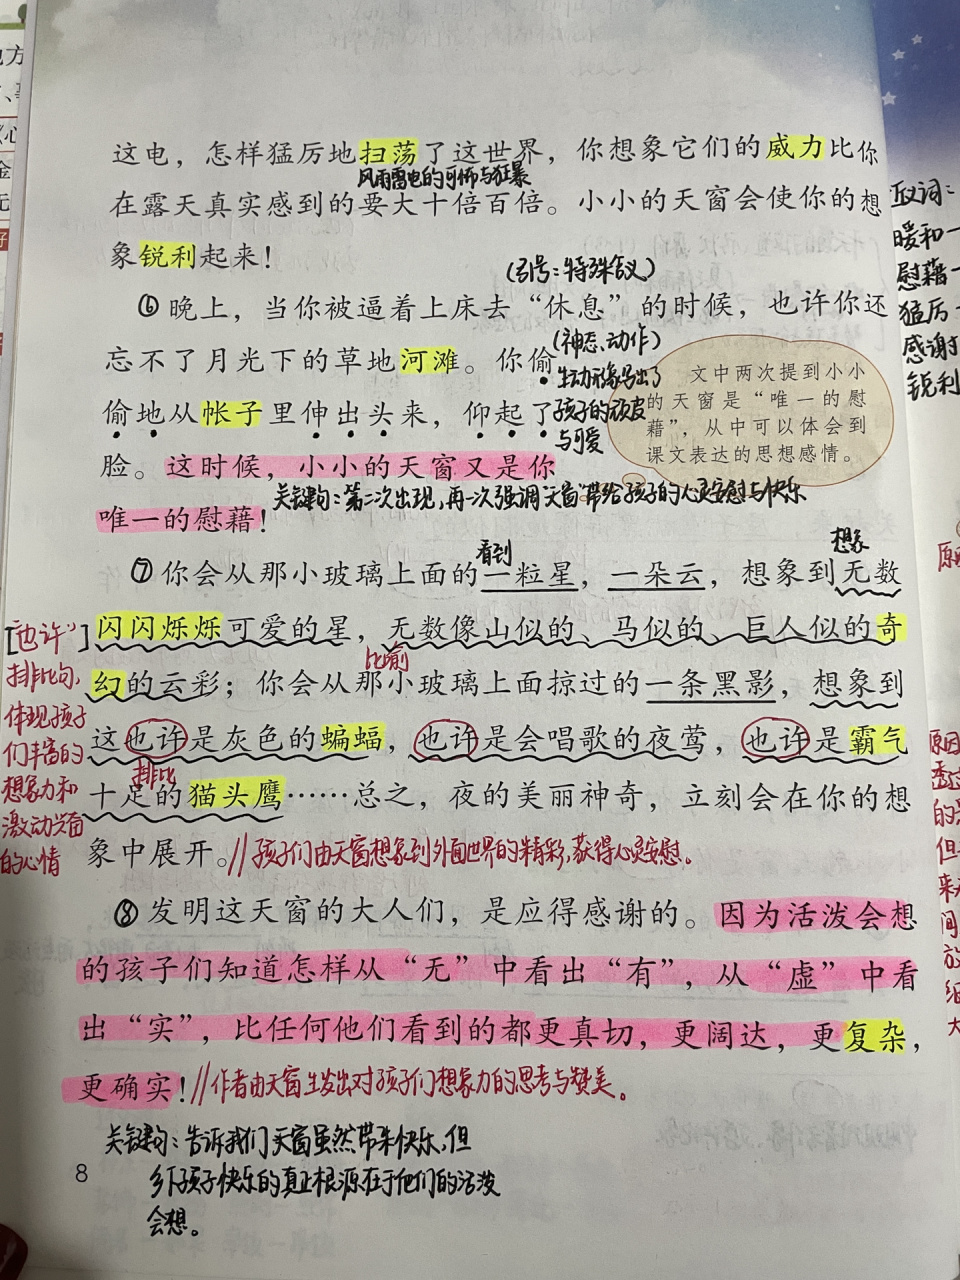 这电，怎样猛厉地扫荡了这世界，你想象它们的威力比你
风雨雷电的可怖与狂暴
在露天真实感到的要大十倍百倍。小小的天窗会使你的想
象锐利起来！
（引号：特殊含义）
⑥晚上，当你被逼着上床去“休息”的时候，也许你还
忘不了月光下的草地河滩。你偷
（神态、动作）
生动形象写出了
孩子的顽皮
与可爱
偷地从帐子里伸出头来，仰起了
脸。这时候，小小的天窗又是你
文中两次提到小小
的天窗是“唯一的慰
藉”，从中可以体会到
课文表达的思想感情。
关键句：第二次出现，再一次强调“天窗”带给孩子的心灵安慰与快乐
唯一的慰藉！
看到
想象
⑦你会从那小玻璃上面的一粒星，一朵云，想象到无数
闪闪烁烁可爱的星，无数像山似的、马似的、巨人似的奇
比喻
幻的云彩；你会从那小玻璃上面掠过的一条黑影，想象到
这也许是灰色的蝙蝠，也许是会唱歌的夜莺，也许是霸气
排比
十足的猫头鹰……总之，夜的美丽神奇，立刻会在你的想
象中展开。//孩子们由天窗想象到外面世界的精彩，获得心灵安慰。
["也许"]
排比句，
体现孩子
们丰富的
想象力和
激动兴奋
的心情
⑧发明这天窗的大人们，是应得感谢的。因为活泼会想
的孩子们知道怎样从“无”中看出“有”，从“虚”中看
出“实”，比任何他们看到的都更真切，更阔达，更复杂，
更确实！//作者由天窗生发出对孩子们想象力的思考与赞美。
关键句：告诉我们天窗虽然带来快乐，但
乡下孩子快乐的真正根源在于他们的活泼
会想。
8
反词：
暖和一
慰藉一
猛厉一
感谢
锐利
原因
透过
的
但
来
间
放
大